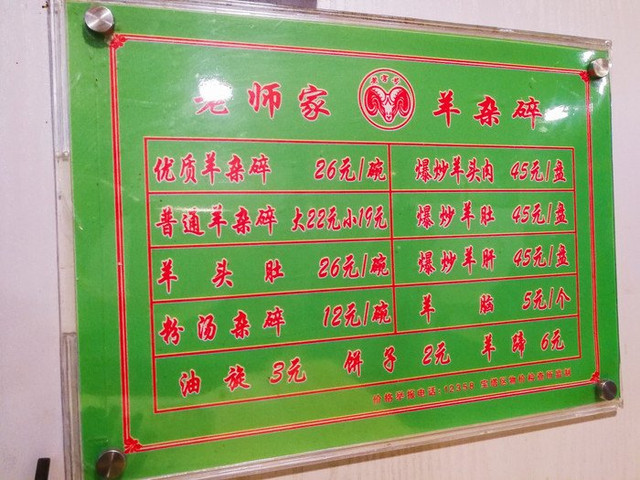 老师家 羊杂碎
优质羊杂碎 26元/碗 爆炒羊头肉 45元/盘
普通羊杂碎 大22元小19元 爆炒羊肚 45元/盘
羊头肚 26元/碗 爆炒羊肝 45元/盘
粉汤杂碎 12元/碗 羊脑 5元/个
油旋 3元 饼子 2元 羊蹄 6元
价格举报电话:12358